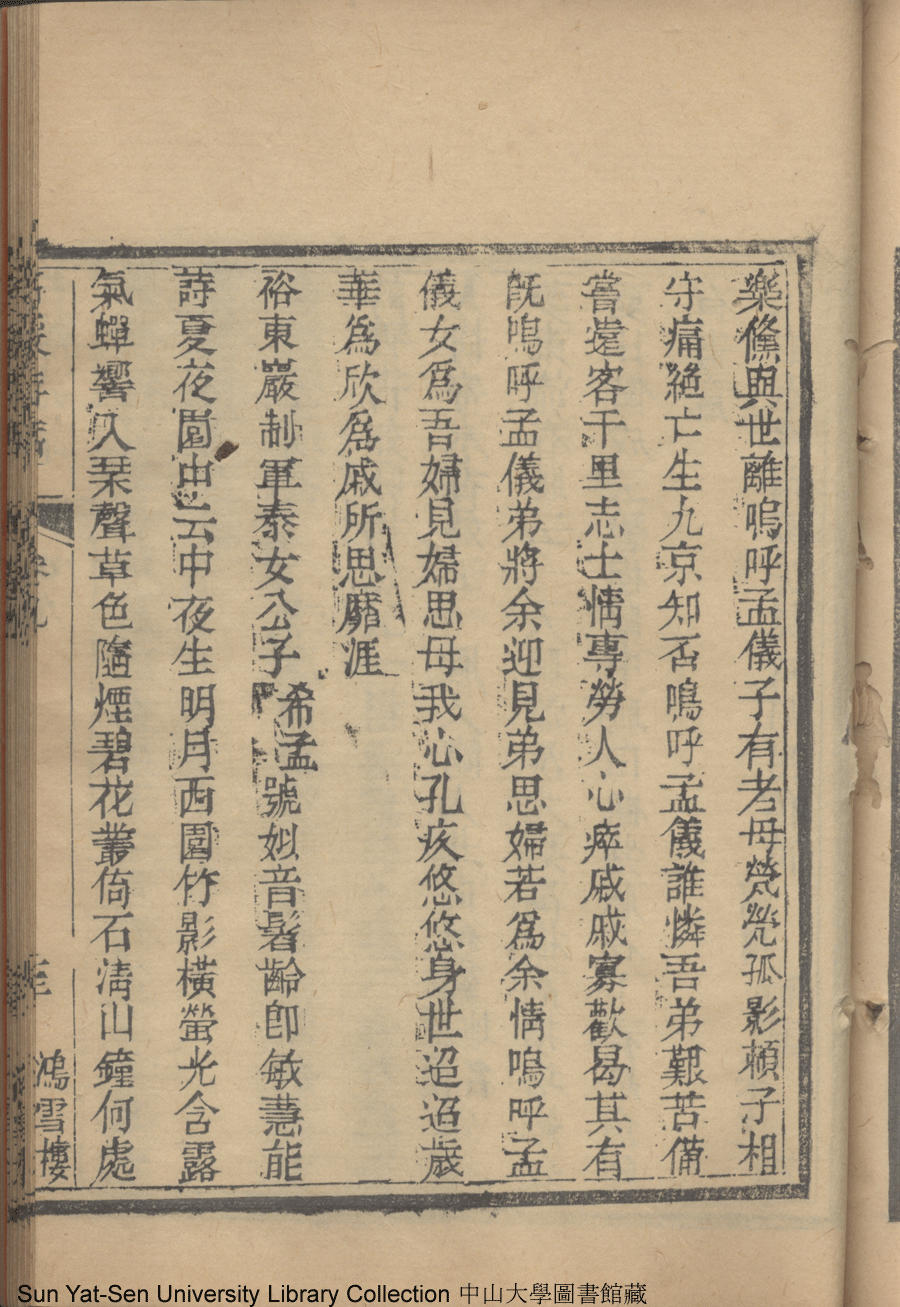 樂儵與世離嗚呼孟儀子有老母煢煢孤影賴子相
守痛絶亡生九京知否嗚呼孟儀誰憐吾弟艱苦備
嘗遠客千里志士情專勞人心瘁戚戚寡歡曷其有
旣嗚呼孟儀弟將余迎見弟思婦若爲余情嗚呼孟
儀女爲吾婦見婦思母我心孔疚悠悠身世迢迢歲
華爲欣爲戚所思靡涯
裕東巖制軍泰女公子希孟號姒音髫齡卽敏慧能
詩夏夜園中云中夜生明月西園竹影橫螢光含露
氣蟬響入琹聲草色隨煙碧花叢倚石淸山鐘何處
卷九
鴻雪樓
Sun Yat-Sen University Library Collection 中山大學圖書館藏